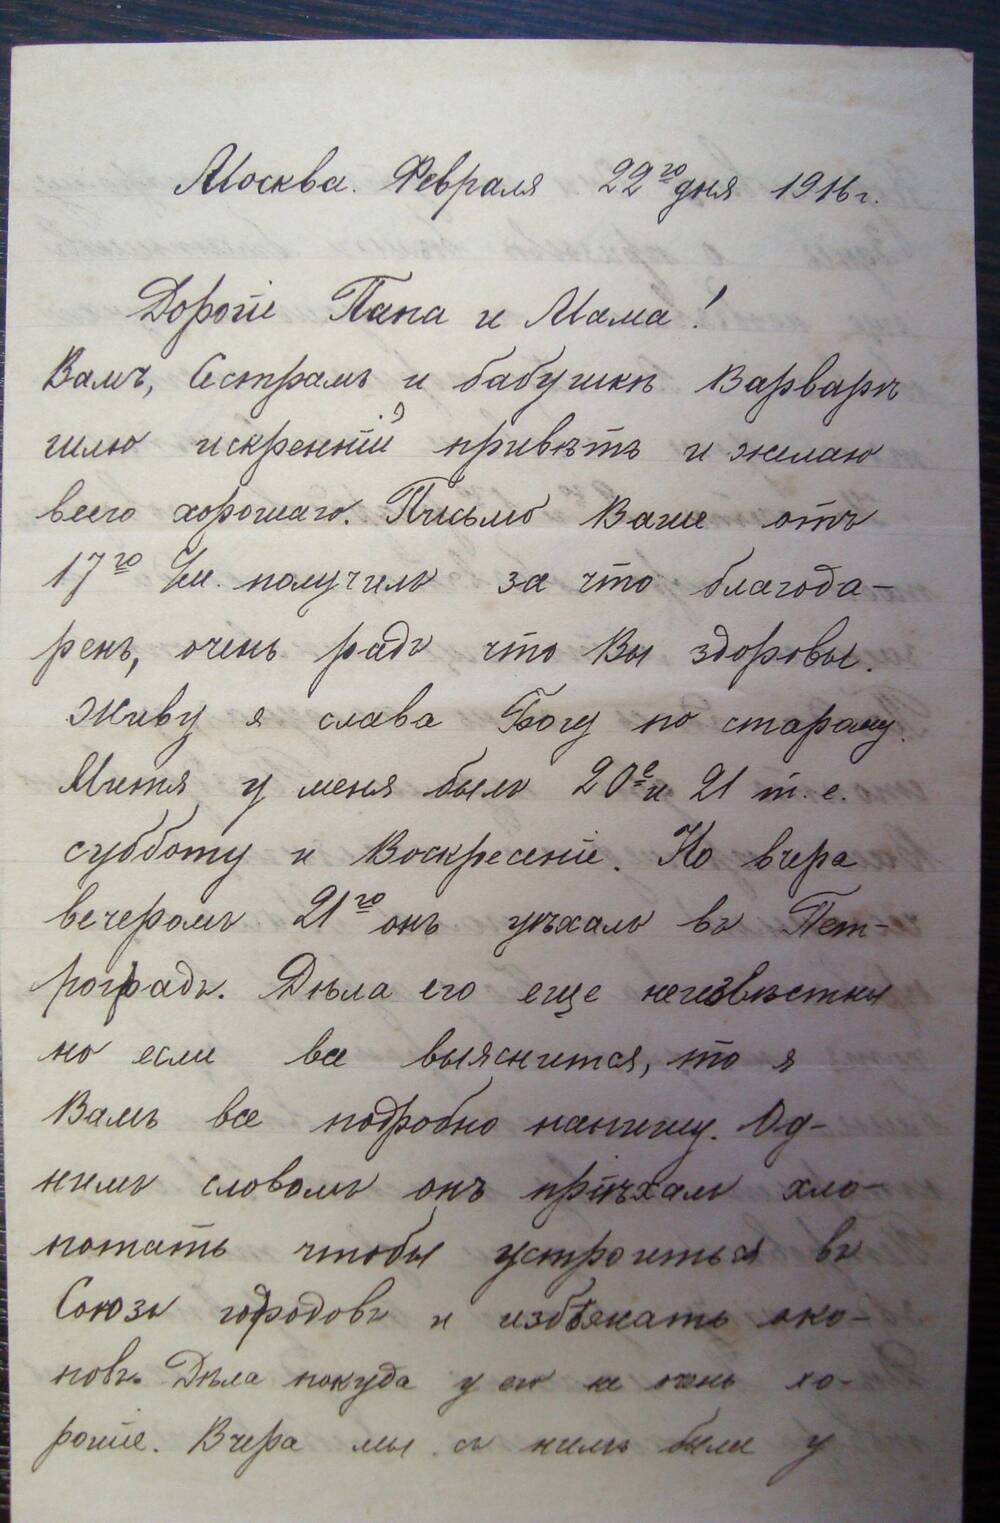 Москва. Февраля 22го дня 1916 г.
Дорогіе Папа и Мама!
Вамъ, Сестрамъ и бабушкѣ Варварѣ
шлю искренній привѣтъ и желаю
всего хорошаго. Письмо Ваше отъ
17го получилъ за что благода-
ренъ, очень радъ что Вы здоровы.
Живу я слава Богу по старому.
Митя у меня былъ 20е и 21 т. е.
субботу и Воскресеніе. Но вчера
вечеромъ 21го онъ уѣхалъ въ Пет-
роградъ. Дѣла его еще неизвѣстны
но если все выяснится, то я
Вамъ все подробно напишу. Од-
нимъ словомъ онъ пріѣхалъ хло-
потать чтобы устроиться въ
Союзъ городовъ и избѣжать око-
повъ. Дѣла покуда у его не очень хо-
рошіе. Вчера мы съ нимъ были у